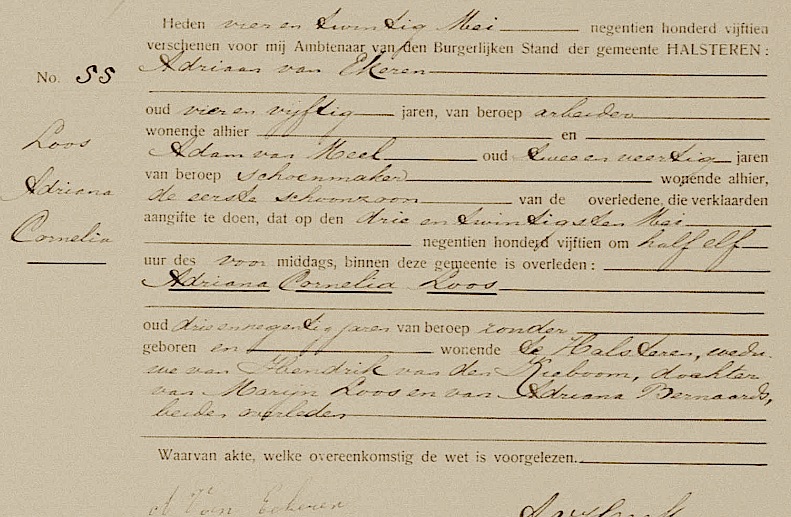 Heden vier en twintig Mei negentien honderd vijftien
verschenen voor mij Ambtenaar van den Burgerlijken Stand der gemeente HALSTEREN:
No. 55
Adriaan van Ekeren
oud vier en vijftig jaren, van beroep arbeider
wonende alhier en
Loos
Adriana
Cornelia
Adam van Meel oud twee en veertig jaren
van beroep schoenmaker wonende alhier,
de eerste schoonzoon van de overledene, die verklaarden
aangifte te doen, dat op den drie en twintigsten Mei
negentien honderd vijftien om half elf
uur des voor middags, binnen deze gemeente is overleden:
Adriana Cornelia Loos
oud drie en negentig jaren van beroep zonder
geboren en wonende te Halsteren, wedu-
we van Hendrik van den Kieboom, dochter
van Marijn Loos en van Adriana Bernaards,
beiden overleden
Waarvan akte, welke overeenkomstig de wet is voorgelezen.
A Van Eekeren